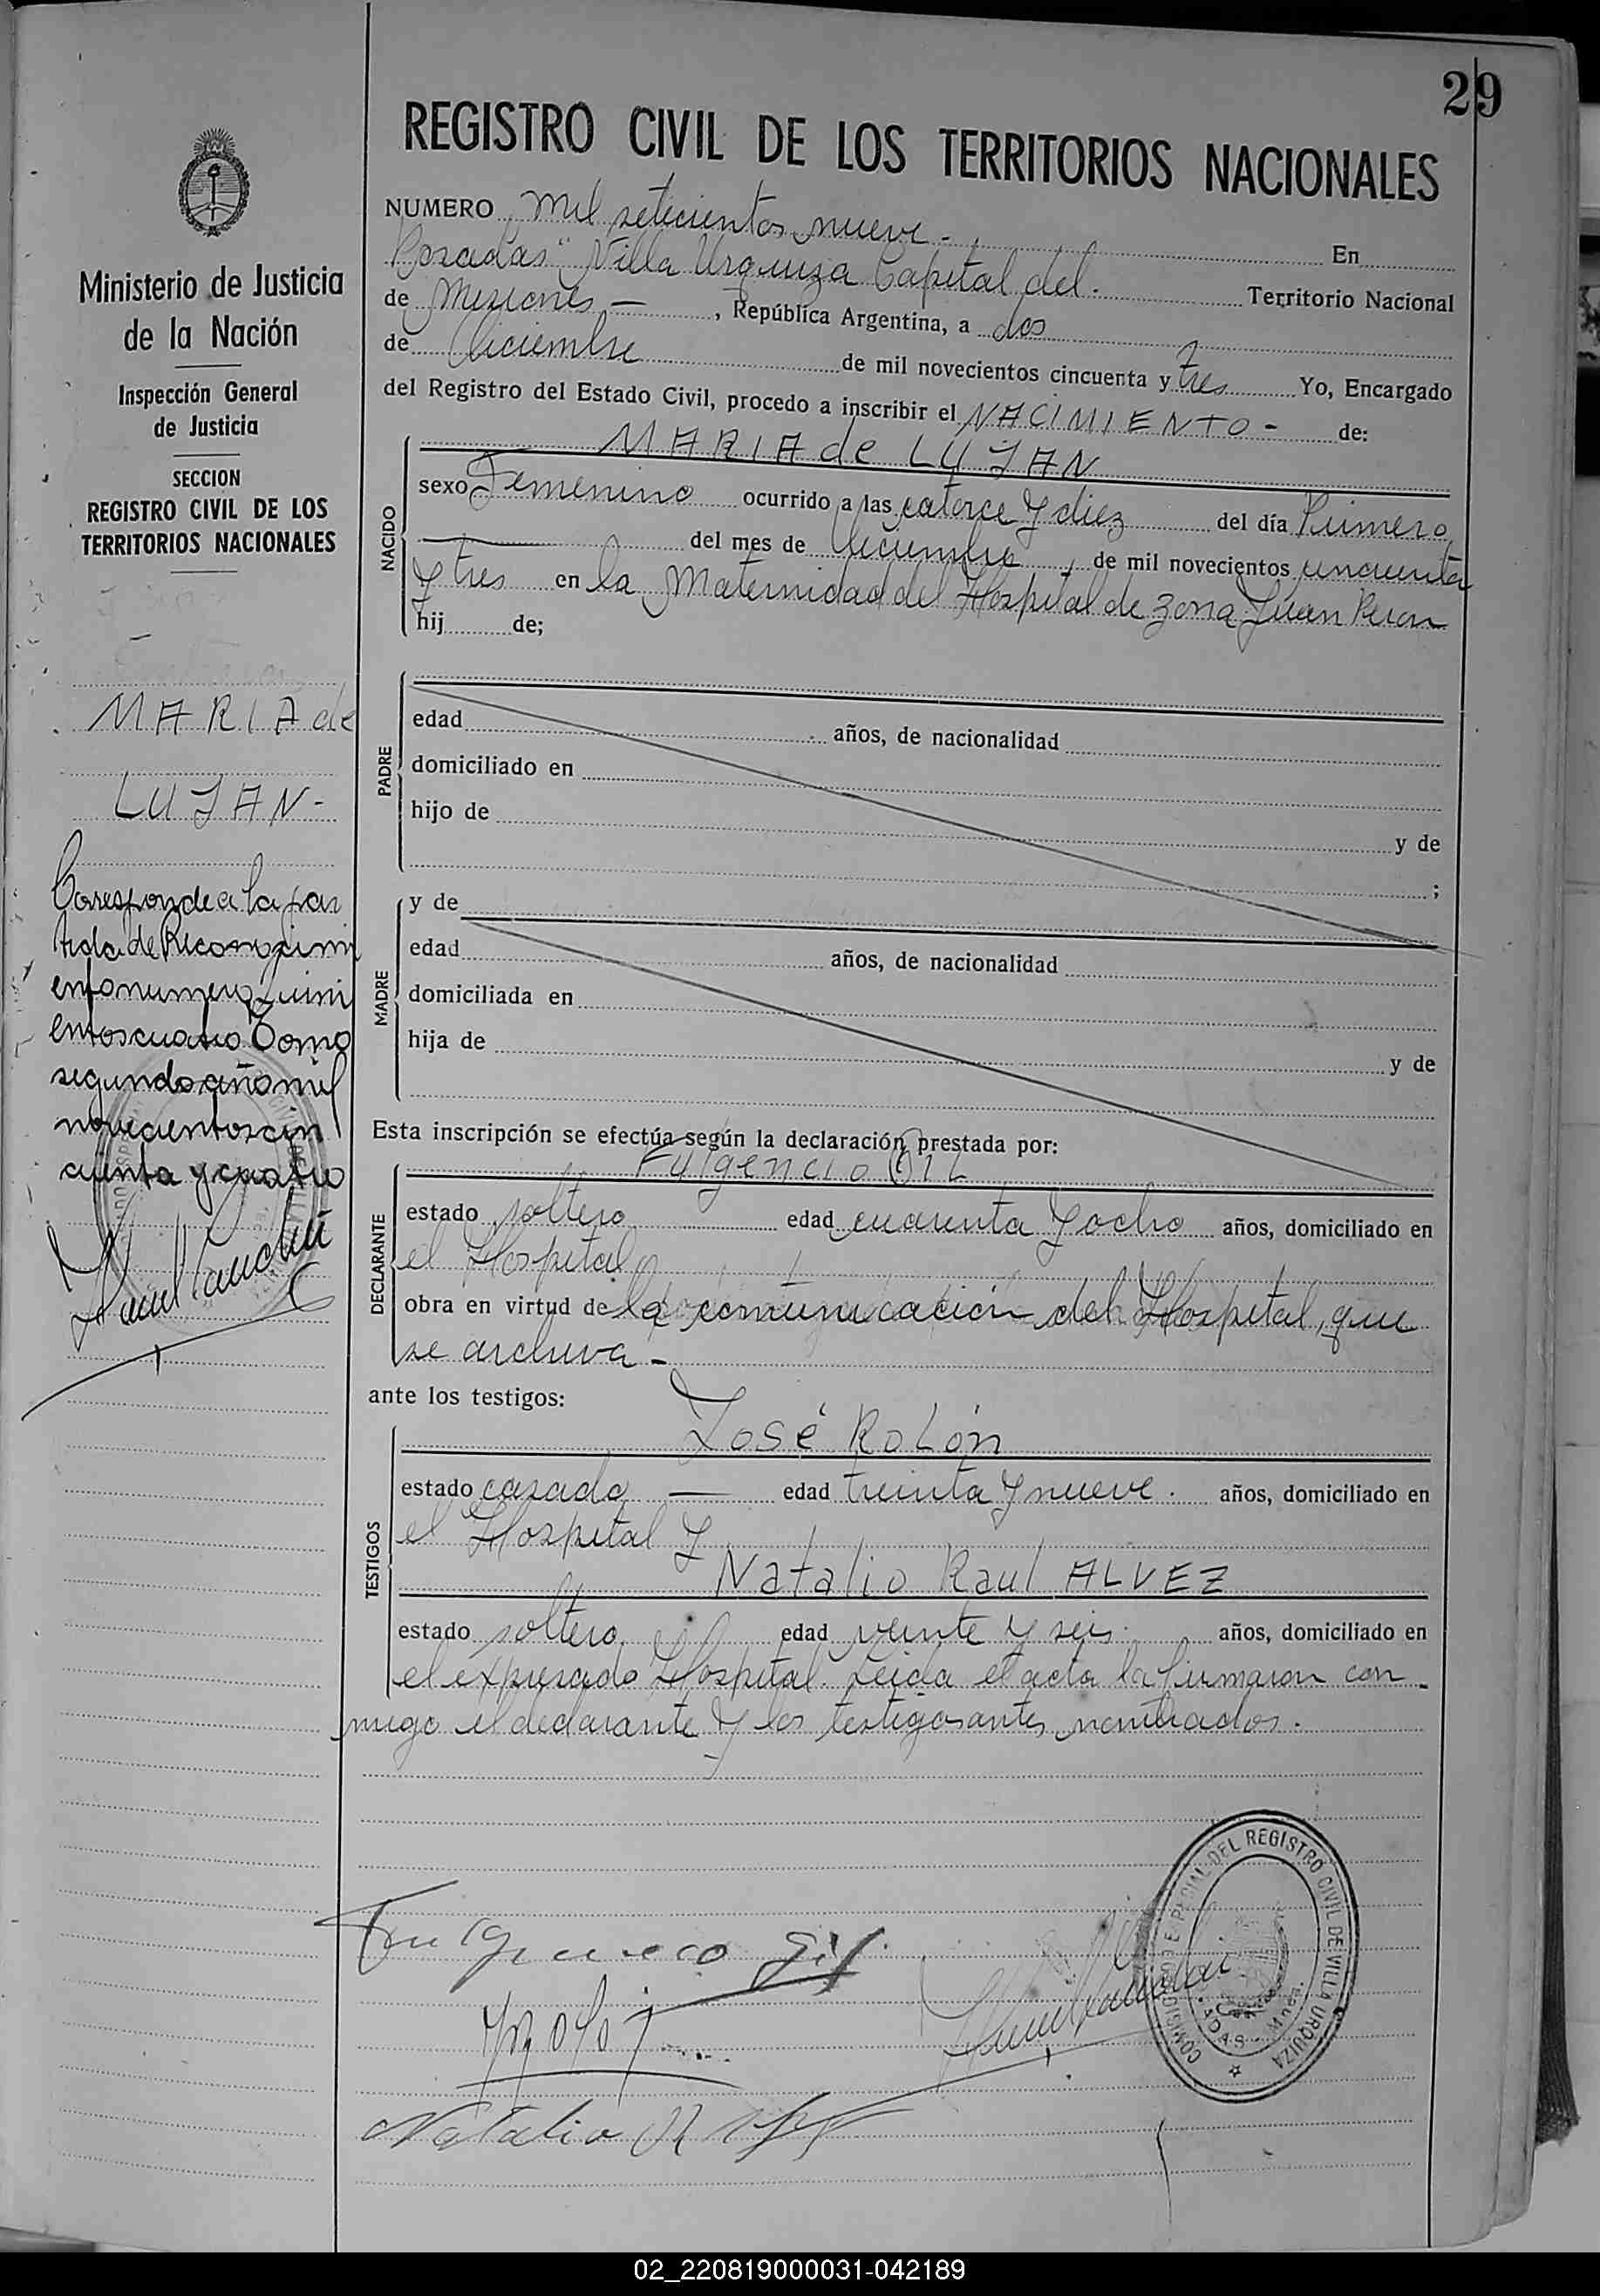 29
REGISTRO CIVIL DE LOS TERRITORIOS NACIONALES
Ministerio de Justicia
de la Nación
Inspección General
de Justicia
SECCION
REGISTRO CIVIL DE LOS
TERRITORIOS NACIONALES
MARIA de
LUJAN-
Corresponde a la par
tida de Reconocimi
ento numero quini
entos cuatro Tomo
segundo año mil
novecientos cin
cuenta y cuatro
NUMERO mil setecientos nueve. En
Posadas "Villa Urquiza Capital del. Territorio Nacional
de Misiones — , República Argentina, a dos
de Diciembre de mil novecientos cincuenta y tres Yo, Encargado
del Registro del Estado Civil, procedo a inscribir el NACIMIENTO - de:
NACIDO
MARIA de LUJAN
sexo Femenino ocurrido a las catorce y diez del día Primero
del mes de Diciembre, de mil novecientos cincuenta
y tres en la Maternidad del Hospital de zona Juan Peron
hij de;
PADRE
edad años, de nacionalidad
domiciliado en
hijo de y de
;
MADRE
y de
edad años, de nacionalidad
domiciliada en
hija de y de
Esta inscripción se efectúa según la declaración prestada por:
DECLARANTE
Fulgencio GIL
estado soltero edad cuarenta y ocho años, domiciliado en
el Hospital
obra en virtud de la comunicación del Hospital, que
se archiva -
ante los testigos:
TESTIGOS
José Rolón
estado casado — edad treinta y nueve. años, domiciliado en
el Hospital y
Natalio Raul ALVEZ
estado soltero edad veinte y seis. años, domiciliado en
el expresado Hospital. Leida el acta la firmaron con
migo el declarante y los testigos antes nombrados.
Fulgencio Gil
Natalio R
COMISION ESPECIAL DEL REGISTRO CIVIL DE VILLA URQUIZA
02_220819000031-042189